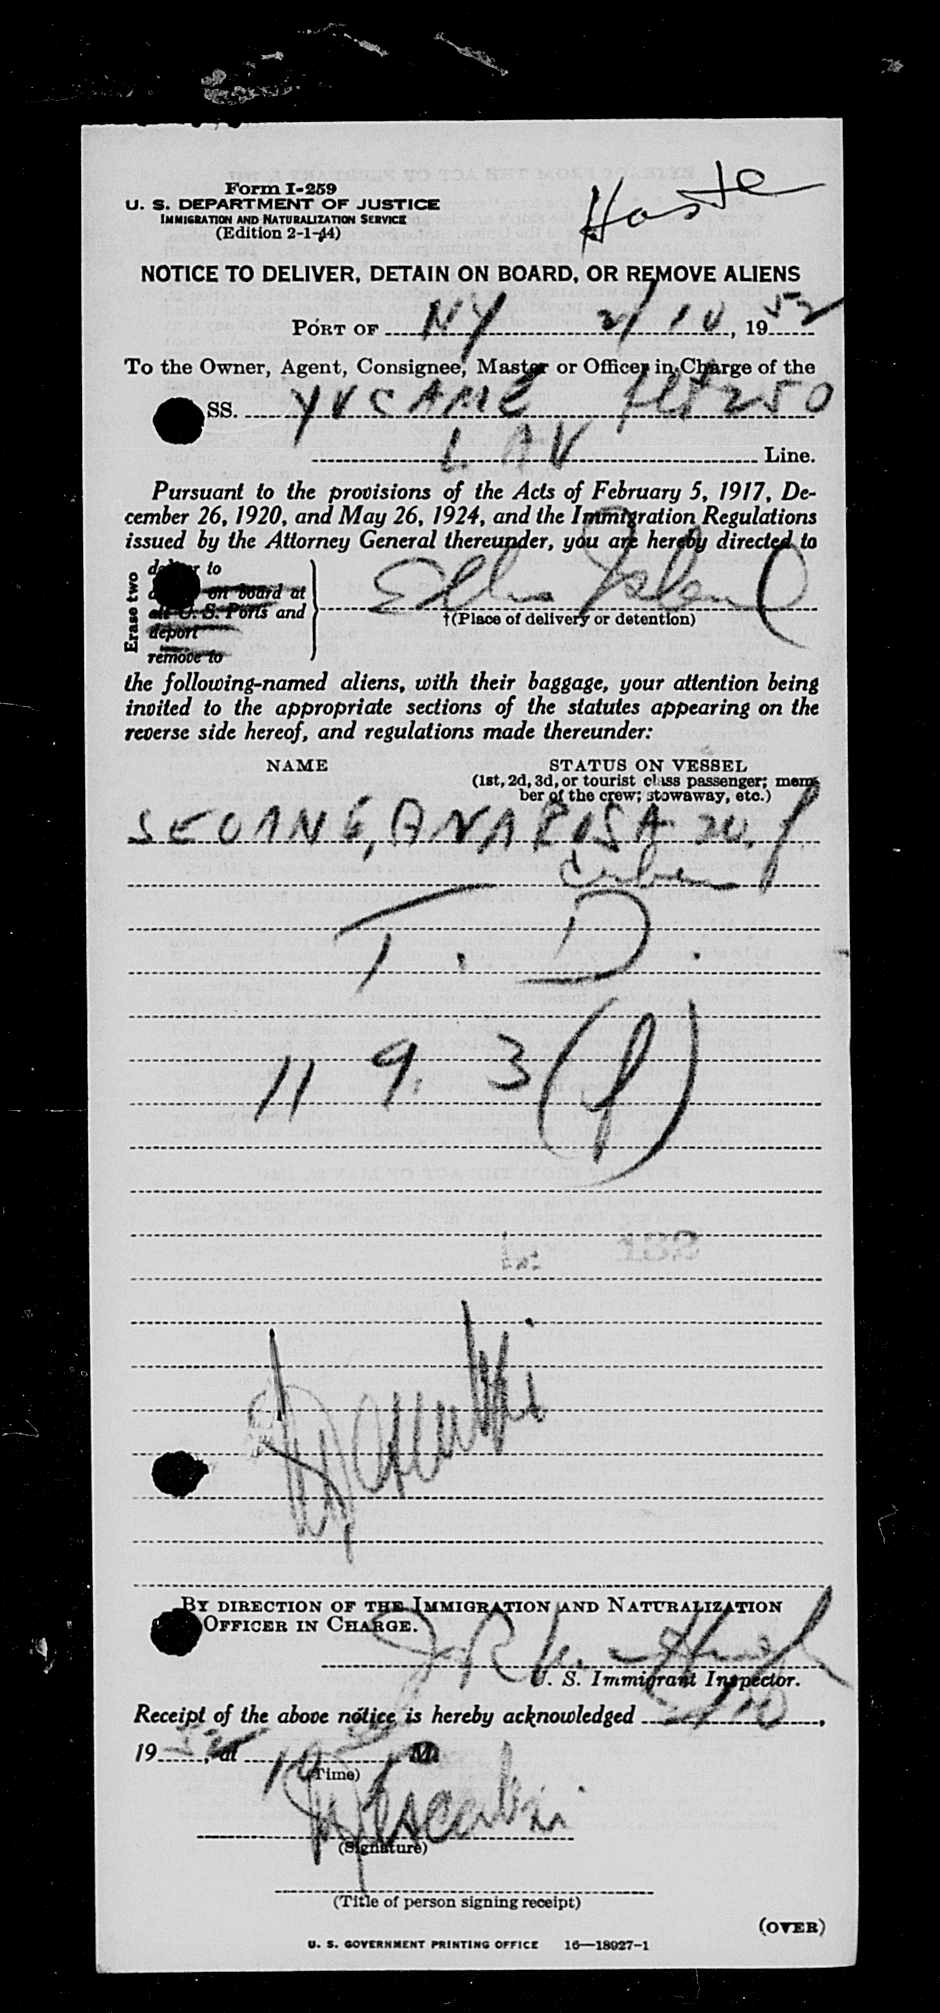 Form I-259
U. S. DEPARTMENT OF JUSTICE
IMMIGRATION AND NATURALIZATION SERVICE
(Edition 2-1-44)
Haste
NOTICE TO DELIVER, DETAIN ON BOARD, OR REMOVE ALIENS
PORT OF NY 2/10, 1952
To the Owner, Agent, Consignee, Master or Officer in Charge of the
SS. YVCAME flt 250
LAV Line.
Pursuant to the provisions of the Acts of February 5, 1917, De-
cember 26, 1920, and May 26, 1924, and the Immigration Regulations
issued by the Attorney General thereunder, you are hereby directed to
Erase two
to
on board at
U. S. Ports and
deport
remove to
Ellis Island
†(Place of delivery or detention)
the following-named aliens, with their baggage, your attention being
invited to the appropriate sections of the statutes appearing on the
reverse side hereof, and regulations made thereunder:
NAME STATUS ON VESSEL
(1st, 2d, 3d, or tourist class passenger; mem-
ber of the crew; stowaway, etc.)
SEOANE, ANA ROSA 20. f
Cuban
T. D.
11 9. 3 (f)
132
BY DIRECTION OF THE IMMIGRATION AND NATURALIZATION
OFFICER IN CHARGE.
U. S. Immigrant Inspector.
Receipt of the above notice is hereby acknowledged 2/10,
1952, at 10 M.
(Time)
(Signature)
(Title of person signing receipt)
(OVER)
U. S. GOVERNMENT PRINTING OFFICE 16—18927-1